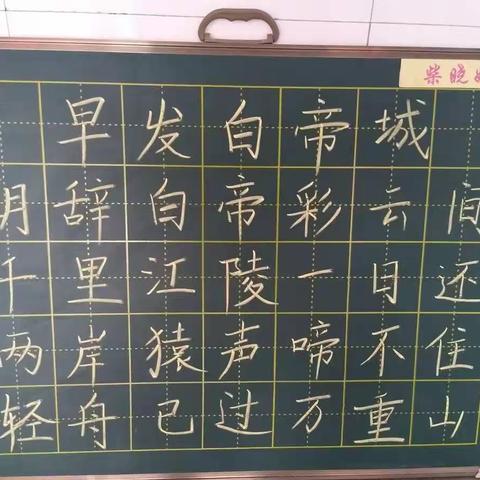 柴晓
早发白帝城
朝辞白帝彩云间
千里江陵一日还
两岸猿声啼不住
轻舟已过万重山